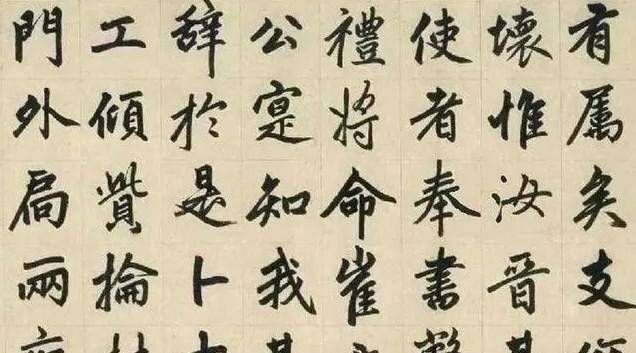 有属矣支
壞惟汝晉
使者奉書
禮將命崔
公寔知我
辭於是卜
工傾貲掄
門外扃兩